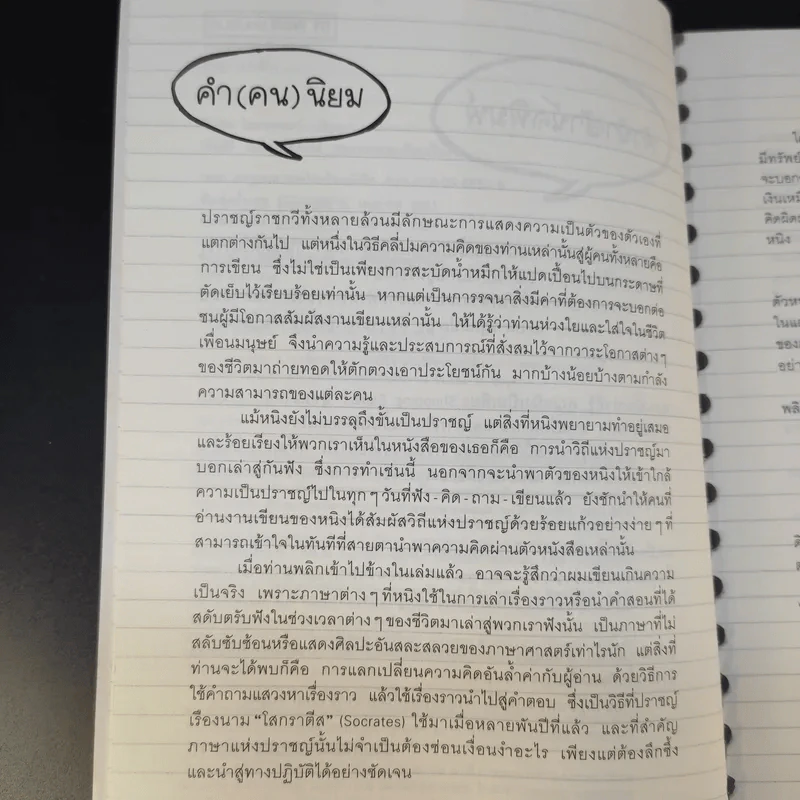 คำ(คน)นิยม
ปราชญ์ราชกวีทั้งหลายล้วนมีลักษณะการแสดงความเป็นตัวของตัวเองที่
แตกต่างกันไป แต่หนึ่งในวิธีคลี่ปมความคิดของท่านเหล่านั้นสู่ผู้คนทั้งหลายคือ
การเขียน ซึ่งไม่ใช่เป็นเพียงการสะบัดน้ำหมึกให้แปดเปื้อนไปบนกระดาษที่
ตัดเย็บไว้เรียบร้อยเท่านั้น หากแต่เป็นการรจนาสิ่งมีค่าที่ต้องการจะบอกต่อ
ชนผู้มีโอกาสสัมผัสงานเขียนเหล่านั้น ให้ได้รู้ว่าท่านห่วงใยและใส่ใจในชีวิต
เพื่อนมนุษย์ จึงนำความรู้และประสบการณ์ที่สั่งสมไว้จากวาระโอกาสต่างๆ
ของชีวิตมาถ่ายทอดให้ตักตวงเอาประโยชน์กัน มากบ้างน้อยบ้างตามกำลัง
ความสามารถของแต่ละคน
แม้หนิงยังไม่บรรลุถึงขั้นเป็นปราชญ์ แต่สิ่งที่หนิงพยายามทำอยู่เสมอ
และร้อยเรียงให้พวกเราเห็นในหนังสือของเธอก็คือ การนำวิถีแห่งปราชญ์มา
บอกเล่าสู่กันฟัง ซึ่งการทำเช่นนี้ นอกจากจะนำพาตัวของหนิงให้เข้าใกล้
ความเป็นปราชญ์ไปในทุกๆวันที่ฟัง-คิด-ถาม-เขียนแล้ว ยังชักนำให้คนที่
อ่านงานเขียนของหนิงได้สัมผัสวิถีแห่งปราชญ์ด้วยร้อยแก้วอย่างง่ายๆที่
สามารถเข้าใจในทันทีที่สายตานำพาความคิดผ่านตัวหนังสือเหล่านั้น
เมื่อท่านพลิกเข้าไปข้างในเล่มแล้ว อาจจะรู้สึกว่าผมเขียนเกินความ
เป็นจริง เพราะภาษาต่างๆที่หนิงใช้ในการเล่าเรื่องราวหรือนำคำสอนที่ได้
สดับตรับฟังในช่วงเวลาต่างๆของชีวิตมาเล่าสู่พวกเราฟังนั้น เป็นภาษาที่ไม่
สลับซับซ้อนหรือแสดงศิลปะอันสละสลวยของภาษาศาสตร์เท่าไรนัก แต่สิ่งที่
ท่านจะได้พบก็คือ การแลกเปลี่ยนความคิดอันล้ำค่ากับผู้อ่าน ด้วยวิธีการ
ใช้คำถามแสวงหาเรื่องราว แล้วใช้เรื่องราวนำไปสู่คำตอบ ซึ่งเป็นวิธีที่ปราชญ์
เรืองนาม “โสกราตีส” (Socrates) ใช้มาเมื่อหลายพันปีที่แล้ว และที่สำคัญ
ภาษาแห่งปราชญ์นั้นไม่จำเป็นต้องซ่อนเงื่อนงำอะไร เพียงแต่ต้องลึกซึ้ง
และนำสู่ทางปฏิบัติได้อย่างชัดเจน
มีทรัพย์
จะบอก
เงินเหมื
คิดผิด
หนิง
ตัวห
ในแ
ของ
อย่า
พลิ